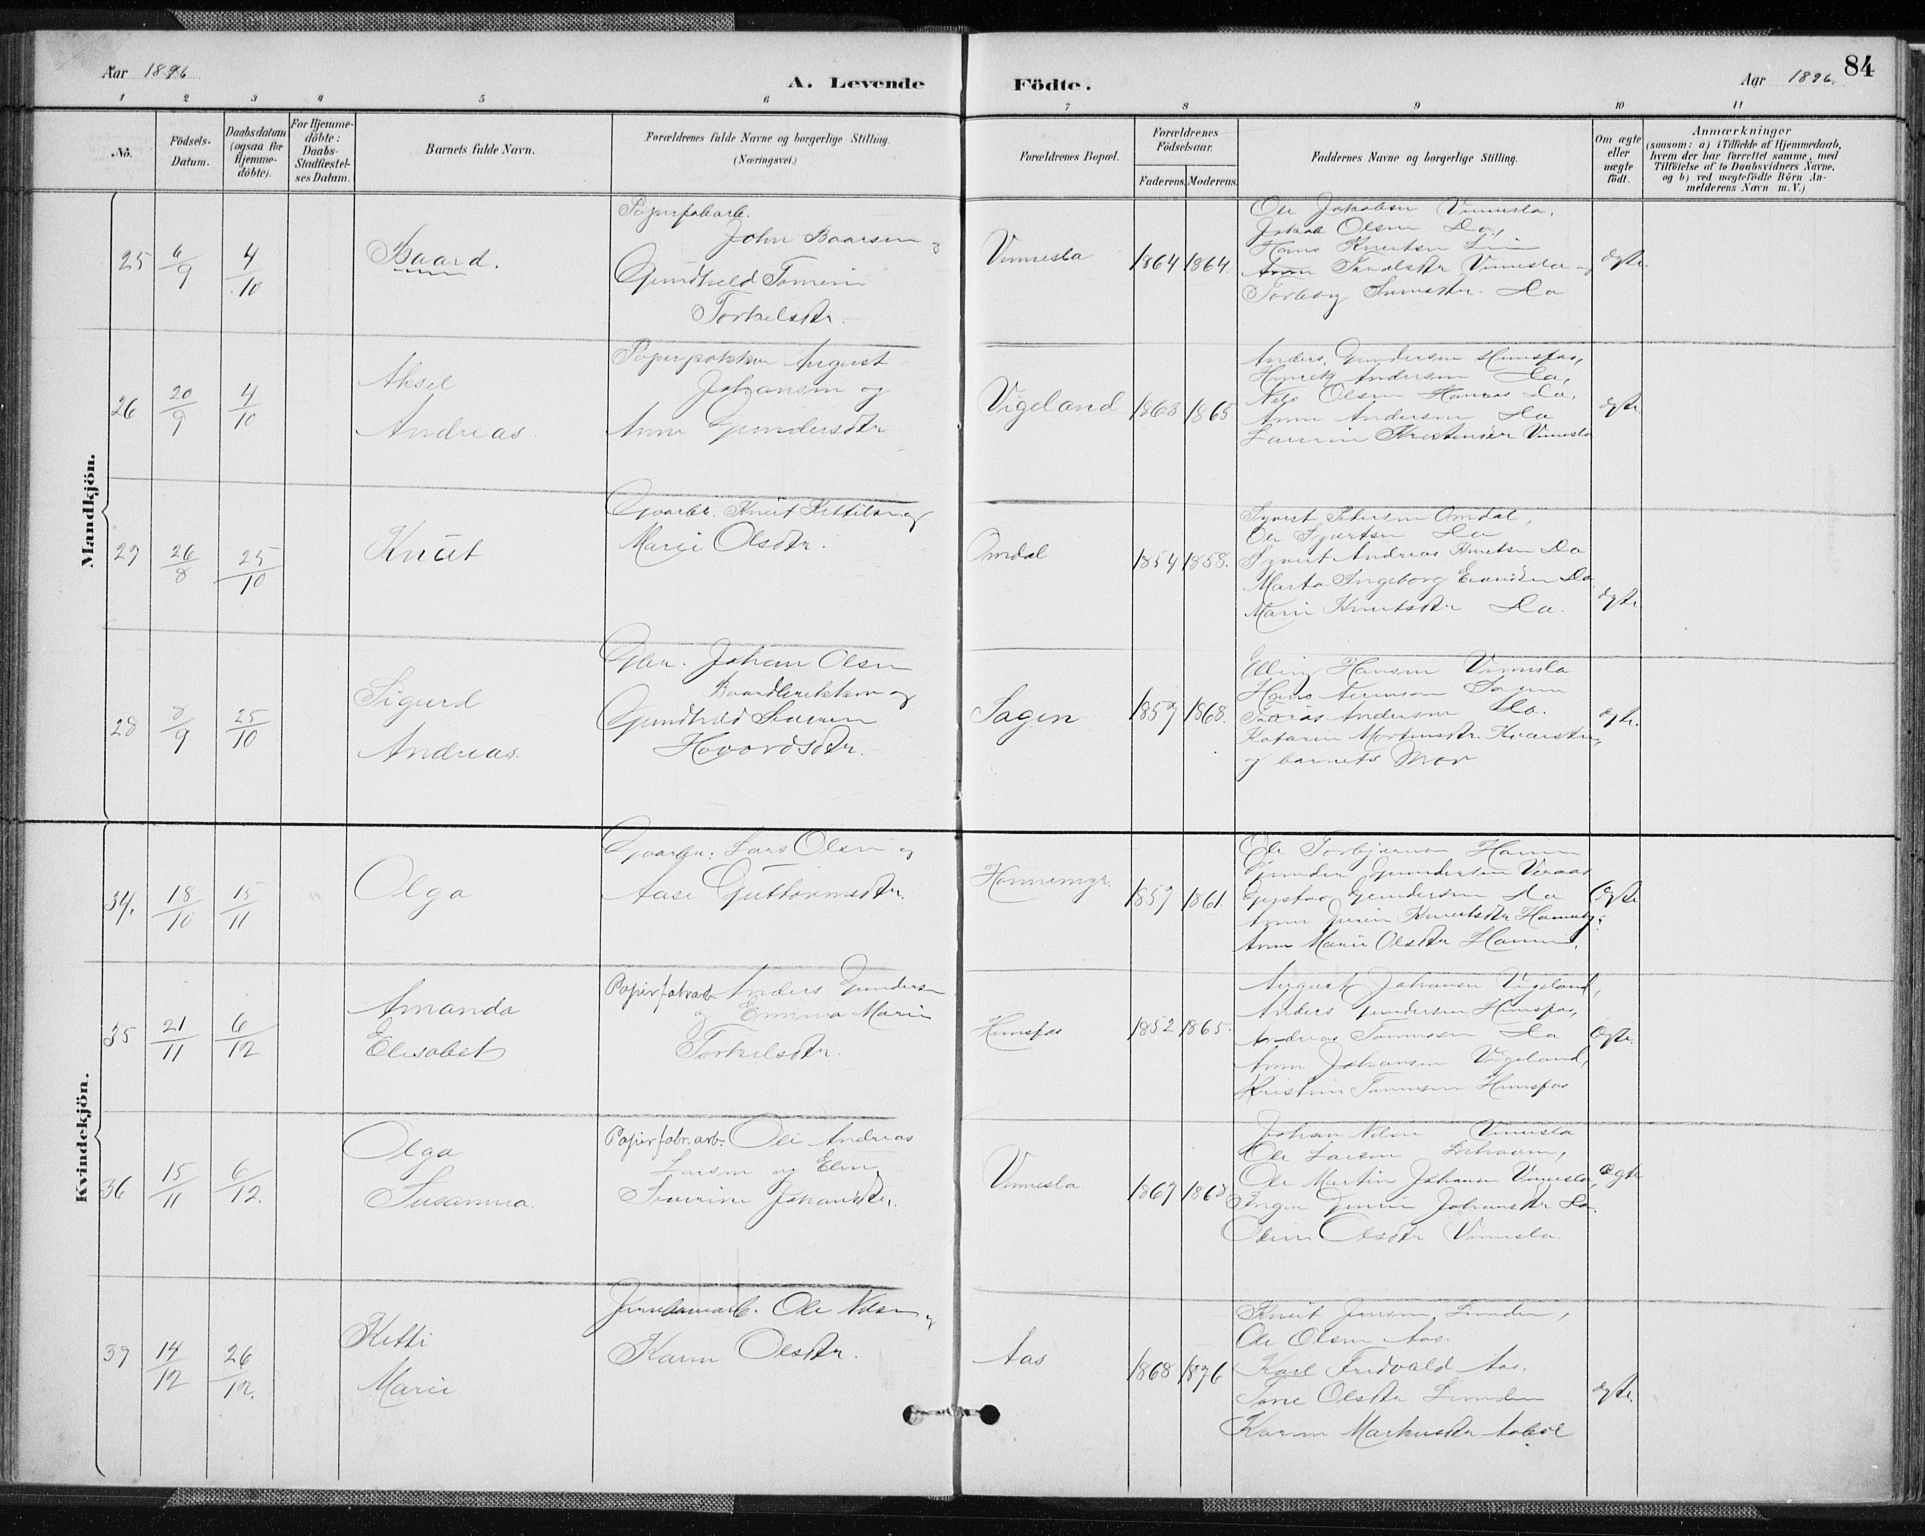 Aar 1896
A. Levende
Födte.
Aar 1896.
84
1 2 3 4 5 6 7 8 9 10 11
No.
Födsels-Datum.
Daabsdatum (ogsaa for Hjemme-döbte).
For Hjemme-döbte: Daabs-Stadfæstel-ses Datum.
Barnets fulde Navn.
Forældrenes fulde Navne og borgerlige Stilling.
(Næringsvei.)
Forældrenes Bopæl.
Forældrenes Födselsaar.
Faderens. Moderens.
Faddernes Navne og borgerlige Stilling.
Om ægte eller uægte födt.
Anmærkninger
(saasom: a) i Tilfælde af Hjemmedaab,
hvem der har forrettet samme, med
Tilföielse af to Daabsvidners Navne,
og b) ved uægtefödte Börn An-
melderens Navn m. V.)
Mandkjön.
25 6/9 4/10
Baard.
Papirfabarb.
John Baarsen og
Gundhild Tomine
Torkelsdtr.
Vennesla
1864 1864
Ole Jakobsen Vennesla,
Jakob Olsen Do,
Hans Knutsen
Vennesla og
Torborg Do
ægte
26 20/9 4/10
Aksel
Andreas.
Papirpakker August
Johansen og
Anne Gundersdtr
Vigeland
1863 1865
Anders Gundersen Hunsfos,
Henrik Andersen Do,
Nils Olsen Do,
Anne Andersen Do
Kristensen Vennesla
ægte
27 26/8 25/10
Knut
Gaarbr. Knut Kittilsen og
Marie Olsdtr.
Omdal
1854 1858.
Syvert Petersen Omdal,
Ole Syvertsen Do
Syvert Andreas Knutsen Do
Marta Ingeborg Do
Marie Knutsdtr Do.
ægte
28 8/9 25/10
Sigurd
Andreas.
Gbr. Johan Olsen
og
Gundhild Severine
Hovordsdtr.
Sagen
1859 1868.
Elling Hansen Vennesla
Hans
Tobias Andersen Do.
Katarine Mortensdtr.
og barnets Mor
ægte.
Kvindekjön.
34. 18/10 15/11
Olga
Gaarbr. Lars Olsen og
Aase Guttormsdtr.
Honnemyr.
1859 1861.
Ole Torbjørnsen
Gunder Gundersen Veraas
Gustav Gundersen Do
Anne Knutsdtr
Anne Marie Olsdtr
Ægte
35 21/11 6/12
Amanda
Elisabet
Papirfabrarb. Anders Gundersen
og Emma Marie
Torkelsdtr.
Hunsfos
1852 1865
August Johansen Vigeland,
Anders Gundersen Hunsfos,
Andreas Tommesen Do
Anne Johansen Vigeland,
Kristine Tommesen Hunsfos
Ægte.
36 15/11 6/12.
Olga
Susanna.
Papirfabr.arb. Ole Andreas
Larsen og Elen
Severine Johansdtr.
Vennesla
1867 1868
Johan Nilsen Vennesla
Ole Larsen
Ole Martin Johansen Vennesla,
Johansdtr Do.
Olsdtr Vennesla.
Ægte
37 14/12 26/12.
Kitti
Marie
Ole Nilsen og
Karen Olsdtr.
Aas
1868 1876
Knut Jensen Lunden,
Ole Olsen Aas.
Karl Fredvald Aas.
Tone Olsdtr Lunden
Karen Markusdtr
ægte.